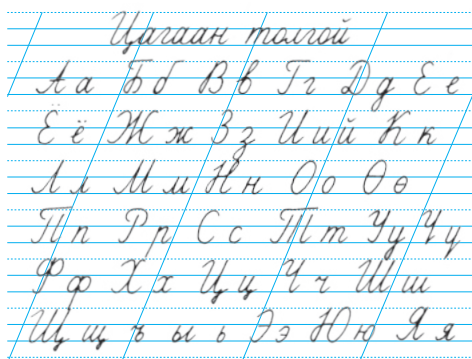 Цагаан толгой
Аа Бб Вв Гг Дд Ее
Ёё Жж Зз Ии й Кк
Лл Мм Нн Оо Өө
Пп Рр Сс Тт Уу Үү
Фф Хх Цц Чч Шш
Щщ ъ ы ь Ээ Юю Яя